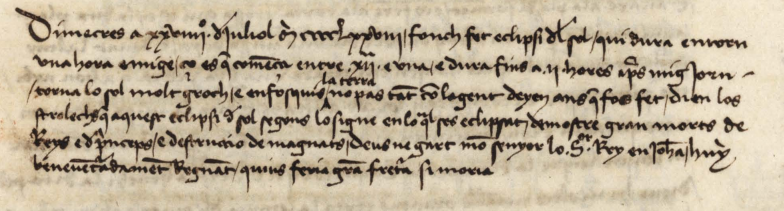 Dimecres a xxviiii. de juliol Mcccclxxviii, fonch fet eclipsi del sol, qui dura entorn
una hora e mige, ço es q comença entre .xii. e una, e dura fins a .ii. hores apres mig jorn
torna lo sol molt groch, e enfosquis la terra no pas tant com la gent deyen ans q fos fet, dien los
strolechs q aquest eclipsi del sol segons lo signe en lo qual ses eclipsat, demostre gran morts de
Reys e de princeps, e destructio de magnats, deus ne gart mo senyor lo .Sor. Rey en Johan, huy
beneventuradament Regnant, quins feria gran fretura si moria